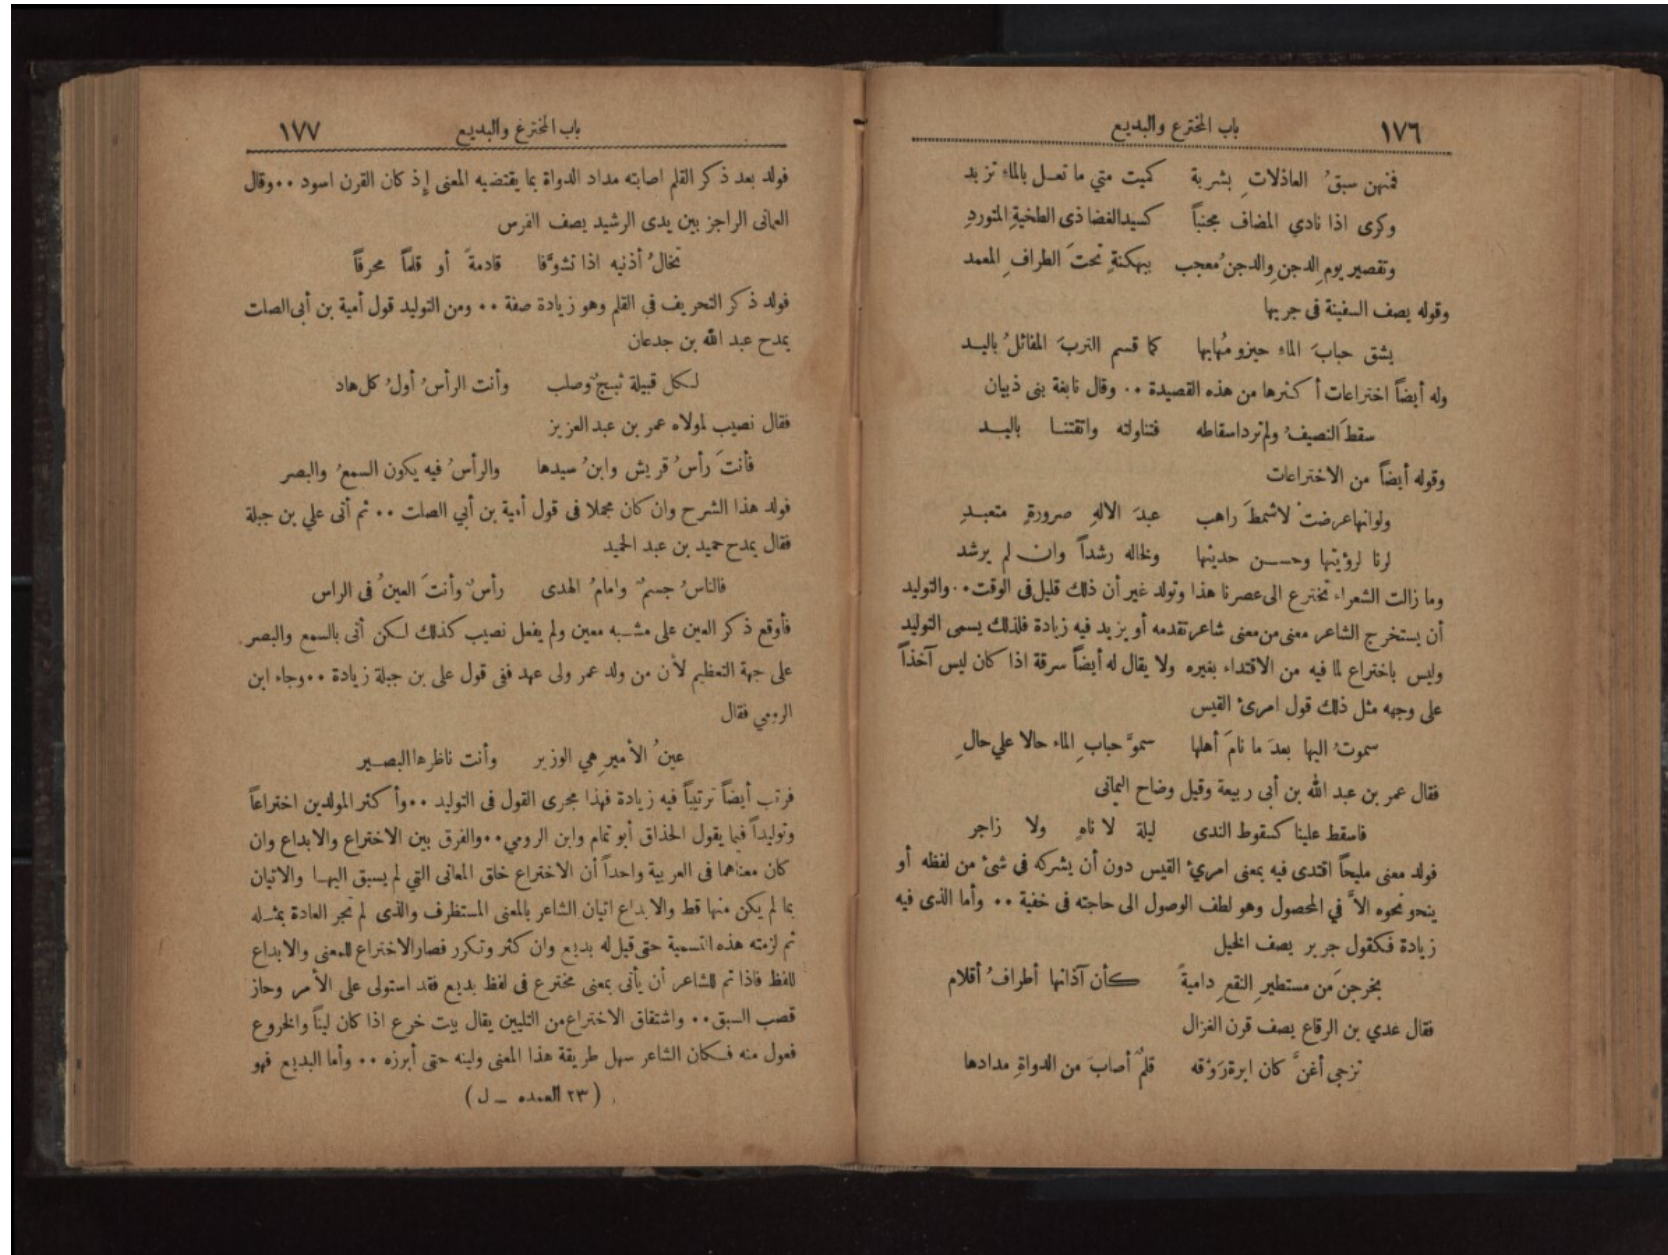 ١٧٦ باب المخترع والبديع
فمنهن سبقُ العاذلاتِ بشربة كميت متي ما تعـل بالماءِ تزبد
وكرى اذا نادي المضاف مجنباً كسيدالغضا ذى الطخيةِ المتوردِ
وتقصير يومِ الدجنِ والدجنُ معجب ببهكنةٍ تحتَ الطرافِ المعمد
وقوله يصف السفينة فى جريها
يشق حبابَ الماءِ حيزومُهابها كما قسم التربَ المفائلُ باليـد
وله أيضاً اختراعات أكثرها من هذه القصيدة ٠٠ وقال نابغة بنى ذبيان
سقطَ النصيفُ ولم ترداسقاطه فتناولته واتقتنـا باليـد
وقوله أيضاً من الاختراعات
ولوانهاعرضتْ لاشمطَ راهب عبدَ الالهِ صرورةٍ متعبـدِ
لرنا لرؤيتها وحـسن حديثها ولخاله رشداً وان لم يرشد
وما زالت الشعراء تخترع الى عصرنا هذا وتولد غير أن ذلك قليل فى الوقت ٠٠ والتوليد
أن يستخرج الشاعر معنى من معنى شاعر تقدمه أو يزيد فيه زيادة فلذلك يسمى التوليد
وليس باختراع لما فيه من الاقتداء بغيره ولا يقال له أيضاً سرقة اذا كان ليس آخذاً
على وجهه مثل ذلك قول امرئ القيس
سموتُ اليها بعدَ ما نامَ أهلها سموَّ حبابِ الماء حالا علي حالِ
فقال عمر بن عبد الله بن أبى ربيعة وقيل وضاح اليمانى
فاسقط علينا كسقوط الندى ليلة لا ناهٍ ولا زاجر
فولد معنى مليحاً اقتدى فيه بمعنى امريء القيس دون أن يشركه فى شئ من لفظه أو
ينحو نحوه الاَّ في المحصول وهو لطف الوصول الى حاجته فى خفية ٠٠ وأما الذى فيه
زيادة فكقول جرير يصف الخيل
يخرجنَ من مستطيرِ النقع داميةً كأن آذانها أطرافُ أقلام
فقال عدي بن الرقاع يصف قرن الغزال
تزجى أغنَّ كان ابرةرَوْقه قلمٌ أصابَ من الدواةِ مدادها
باب المخترع والبديع ١٧٧
فولد بعد ذكر القلم اصابته مداد الدواة بما يقتضيه المعنى إذ كان القرن اسود ٠٠ وقال
العمانى الراجز بين يدى الرشيد يصف الفرس
تخالُ أذنيه اذا تشوَّفا قادمةً أو قلماً محرفاً
فولد ذكر التحريف في القلم وهو زيادة صفة ٠٠ ومن التوليد قول أمية بن أبى الصلت
يمدح عبد الله بن جدعان
لكل قبيلة ثبجٌ وصلب وأنت الرأسُ أولُ كل هاد
فقال نصيب لمولاه عمر بن عبد العزيز
فأنتَ رأسُ قريش وابنُ سيدها والرأسُ فيه يكون السمعُ والبصر
فولد هذا الشرح وان كان مجملا فى قول أمية بن أبي الصلت ٠٠ ثم أتى علي بن جبلة
فقال يمدح حميد بن عبد الحميد
فالناسُ جسمٌ وامامُ الهدى رأسٌ وأنتَ العينُ فى الراس
فأوقع ذكر العين على مشـبه معين ولم يفعل نصيب كذلك لكن أتى بالسمع والبصر
على جهة التعظيم لأن من ولد عمر ولى عهد ففى قول على بن جبلة زيادة ٠٠ وجاء ابن
الرومي فقال
عينُ الأميرِ هي الوزير وأنت ناظرها البصـير
فرتب أيضاً ترتيباً فيه زيادة فهذا مجرى القول فى التوليد ٠٠ وأكثر المولدين اختراعاً
وتوليداً فيما يقول الحذاق أبو تمام وابن الرومي ٠٠ والفرق بين الاختراع والابداع وان
كان معناهما فى العربية واحداً أن الاختراع خلق المعانى التي لم يسبق اليهـا والاتيان
بما لم يكن منها قط والابداع اتيان الشاعر بالمعنى المستظرف والذى لم تجر العادة بمثـله
ثم لزمته هذه التسمية حتى قيل له بديع وان كثر وتكرر فصار الاختراع للمعنى والابداع
للفظ فاذا تم للشاعر أن يأتى بمعنى مخترع فى لفظ بديع فقد استولى على الأمر وحاز
قصب السبق ٠٠ واشتقاق الاختراع من التليين يقال بيت خرع اذا كان ليناً والخروع
فعول منه فكان الشاعر سهل طريقة هذا المعنى ولينه حتى أبرزه ٠٠ وأما البديع فهو
( ٢٣ العمده ــ ل )